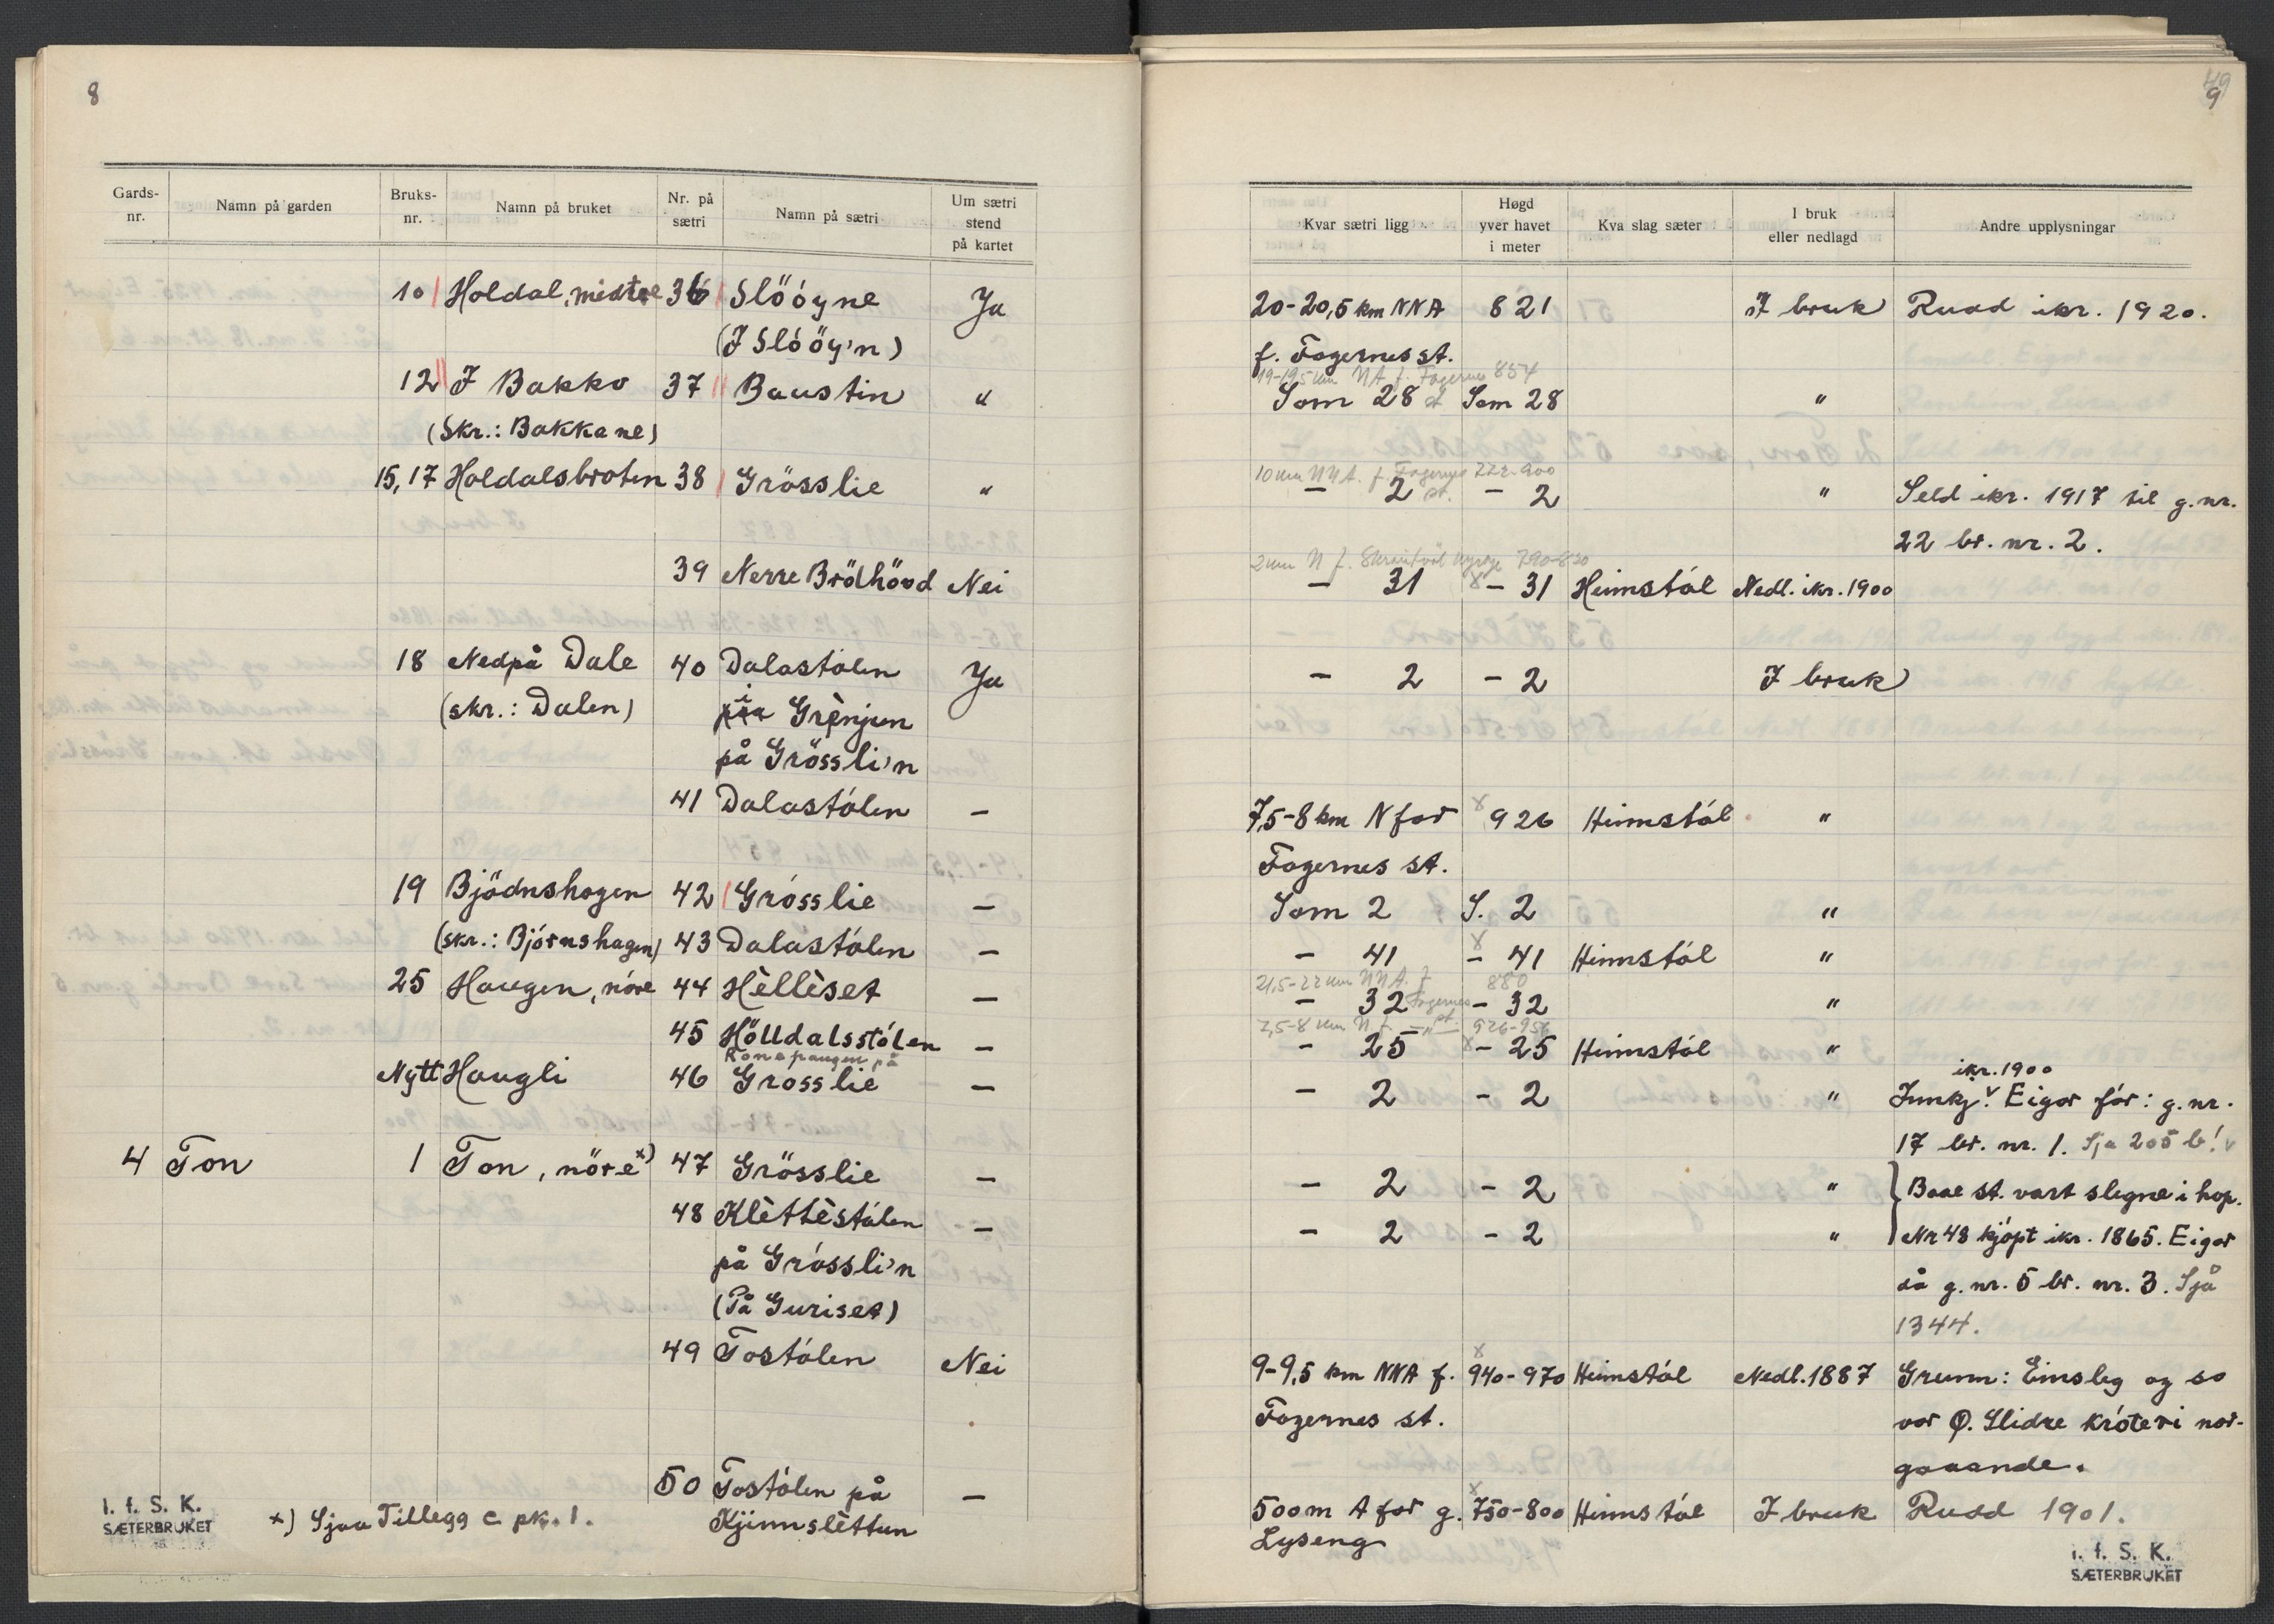 8
Gards-nr. Namn på garden Bruks-nr. Namn på bruket Nr. på sætri Namn på sætri Um sætri stend på kartet
10 Holdal, midtre 36 Slööyne Ja
(I Slööy'n)
12 I Bakko 37 Baustin "
(Skr.: Bakkane)
15, 17 Holdalsbroten 38 Grösslie "
39 Nerre Brödhövd Nei
18 Nedpå Dale 40 Dalastölen Ja
(skr.: Dalen) i Grènjun
på Grössli'n
41 Dalastölen –
19 Bjödnshagen 42 Grösslie –
(skr.: Björnshagen) 43 Dalastölen –
25 Haugen, nöre 44 Hèllèset –
45 Hölldalsstölen –
Ronehaugen på
Nytt Haugli 46 Grösslie –
4 Ton 1 Ton, nöre x) 47 Grösslie –
48 Klèttèstölen –
på Grössli'n
(På Guriset)
49 Tostölen Nei
50 Tostölen på –
Kjinnslèttun
x) Sjaa Tillegg c pk. 1.
I. f. S. K.
SÆTERBRUKET
49
9
Kvar sætri ligg Høgd yver havet i meter Kva slag sæter I bruk eller nedlagd Andre upplysningar
20-20,5 km NNA 821 I bruk Rudd ikr. 1920.
f. Fagernes st.
19-19,5 km NA f. Fagernes 854
Som 28 st Som 28 "
10 km NNA. f. Fagernes 772-900
– 2 st. – 2 " Seld ikr. 1917 til g.nr.
22 br. nr. 2.
2 km N f. Skrautvål kyrkje 790-830
– 31 x – 31 Heimstöl Nedl. ikr. 1900
– 2 – 2 I bruk
7,5-8 km N for x 926 Heimstöl "
Fagernes st.
Som 2 S. 2 "
– 41 x – 41 Heimstöl "
21,5-22 km NNA. f. 880
– 32 Fagernes – 32 "
7,5-8 km N f. –"– st 926-956
– 25 x – 25 Heimstöl "
ikr. 1900
– 2 – 2 " Innkj. v Eigar för: g.nr.
17 br. nr. 1. Sja 205 b! v
– 2 – 2 " Baae st. vart slegne i hop.
– 2 – 2 " Nr 48 kjöpt ikr. 1865. Eigar
då g. nr. 5 br. nr. 3. Sjå
1344.
x
9-9,5 km NNA f. 940-970 Heimstöl Nedl. 1887 Grunn: Einsleg og so
Fagernes st. var Ø. Slidre kröteri nor-
gaaande.
x
500m A for g. 750-800 Heimstöl I bruk Rudd 1901.
Lyseng
I. f. S. K.
SÆTERBRUKET